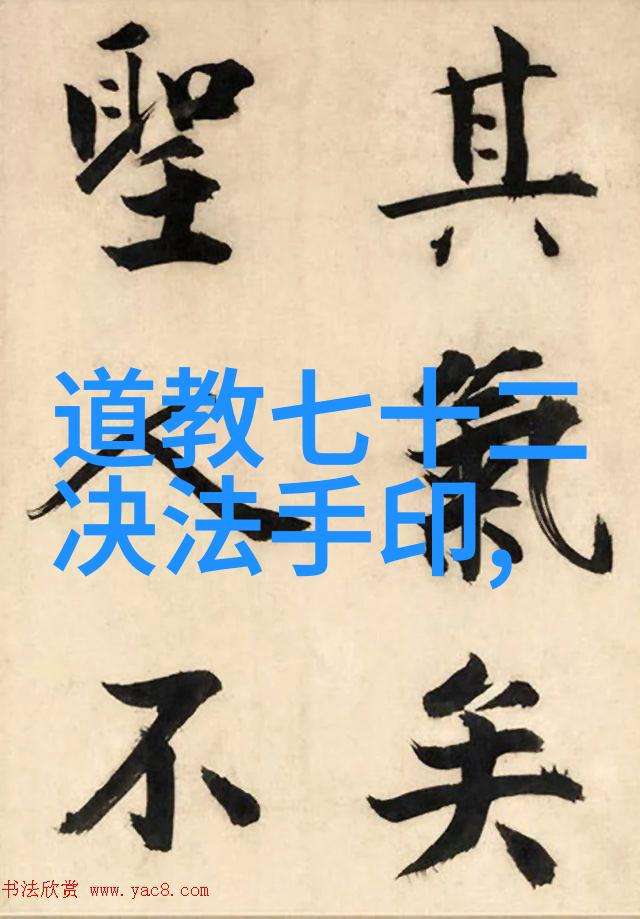 其氣矣
聖人不
道教七十二
决法手印,
书法欣赏 www.yac8.com